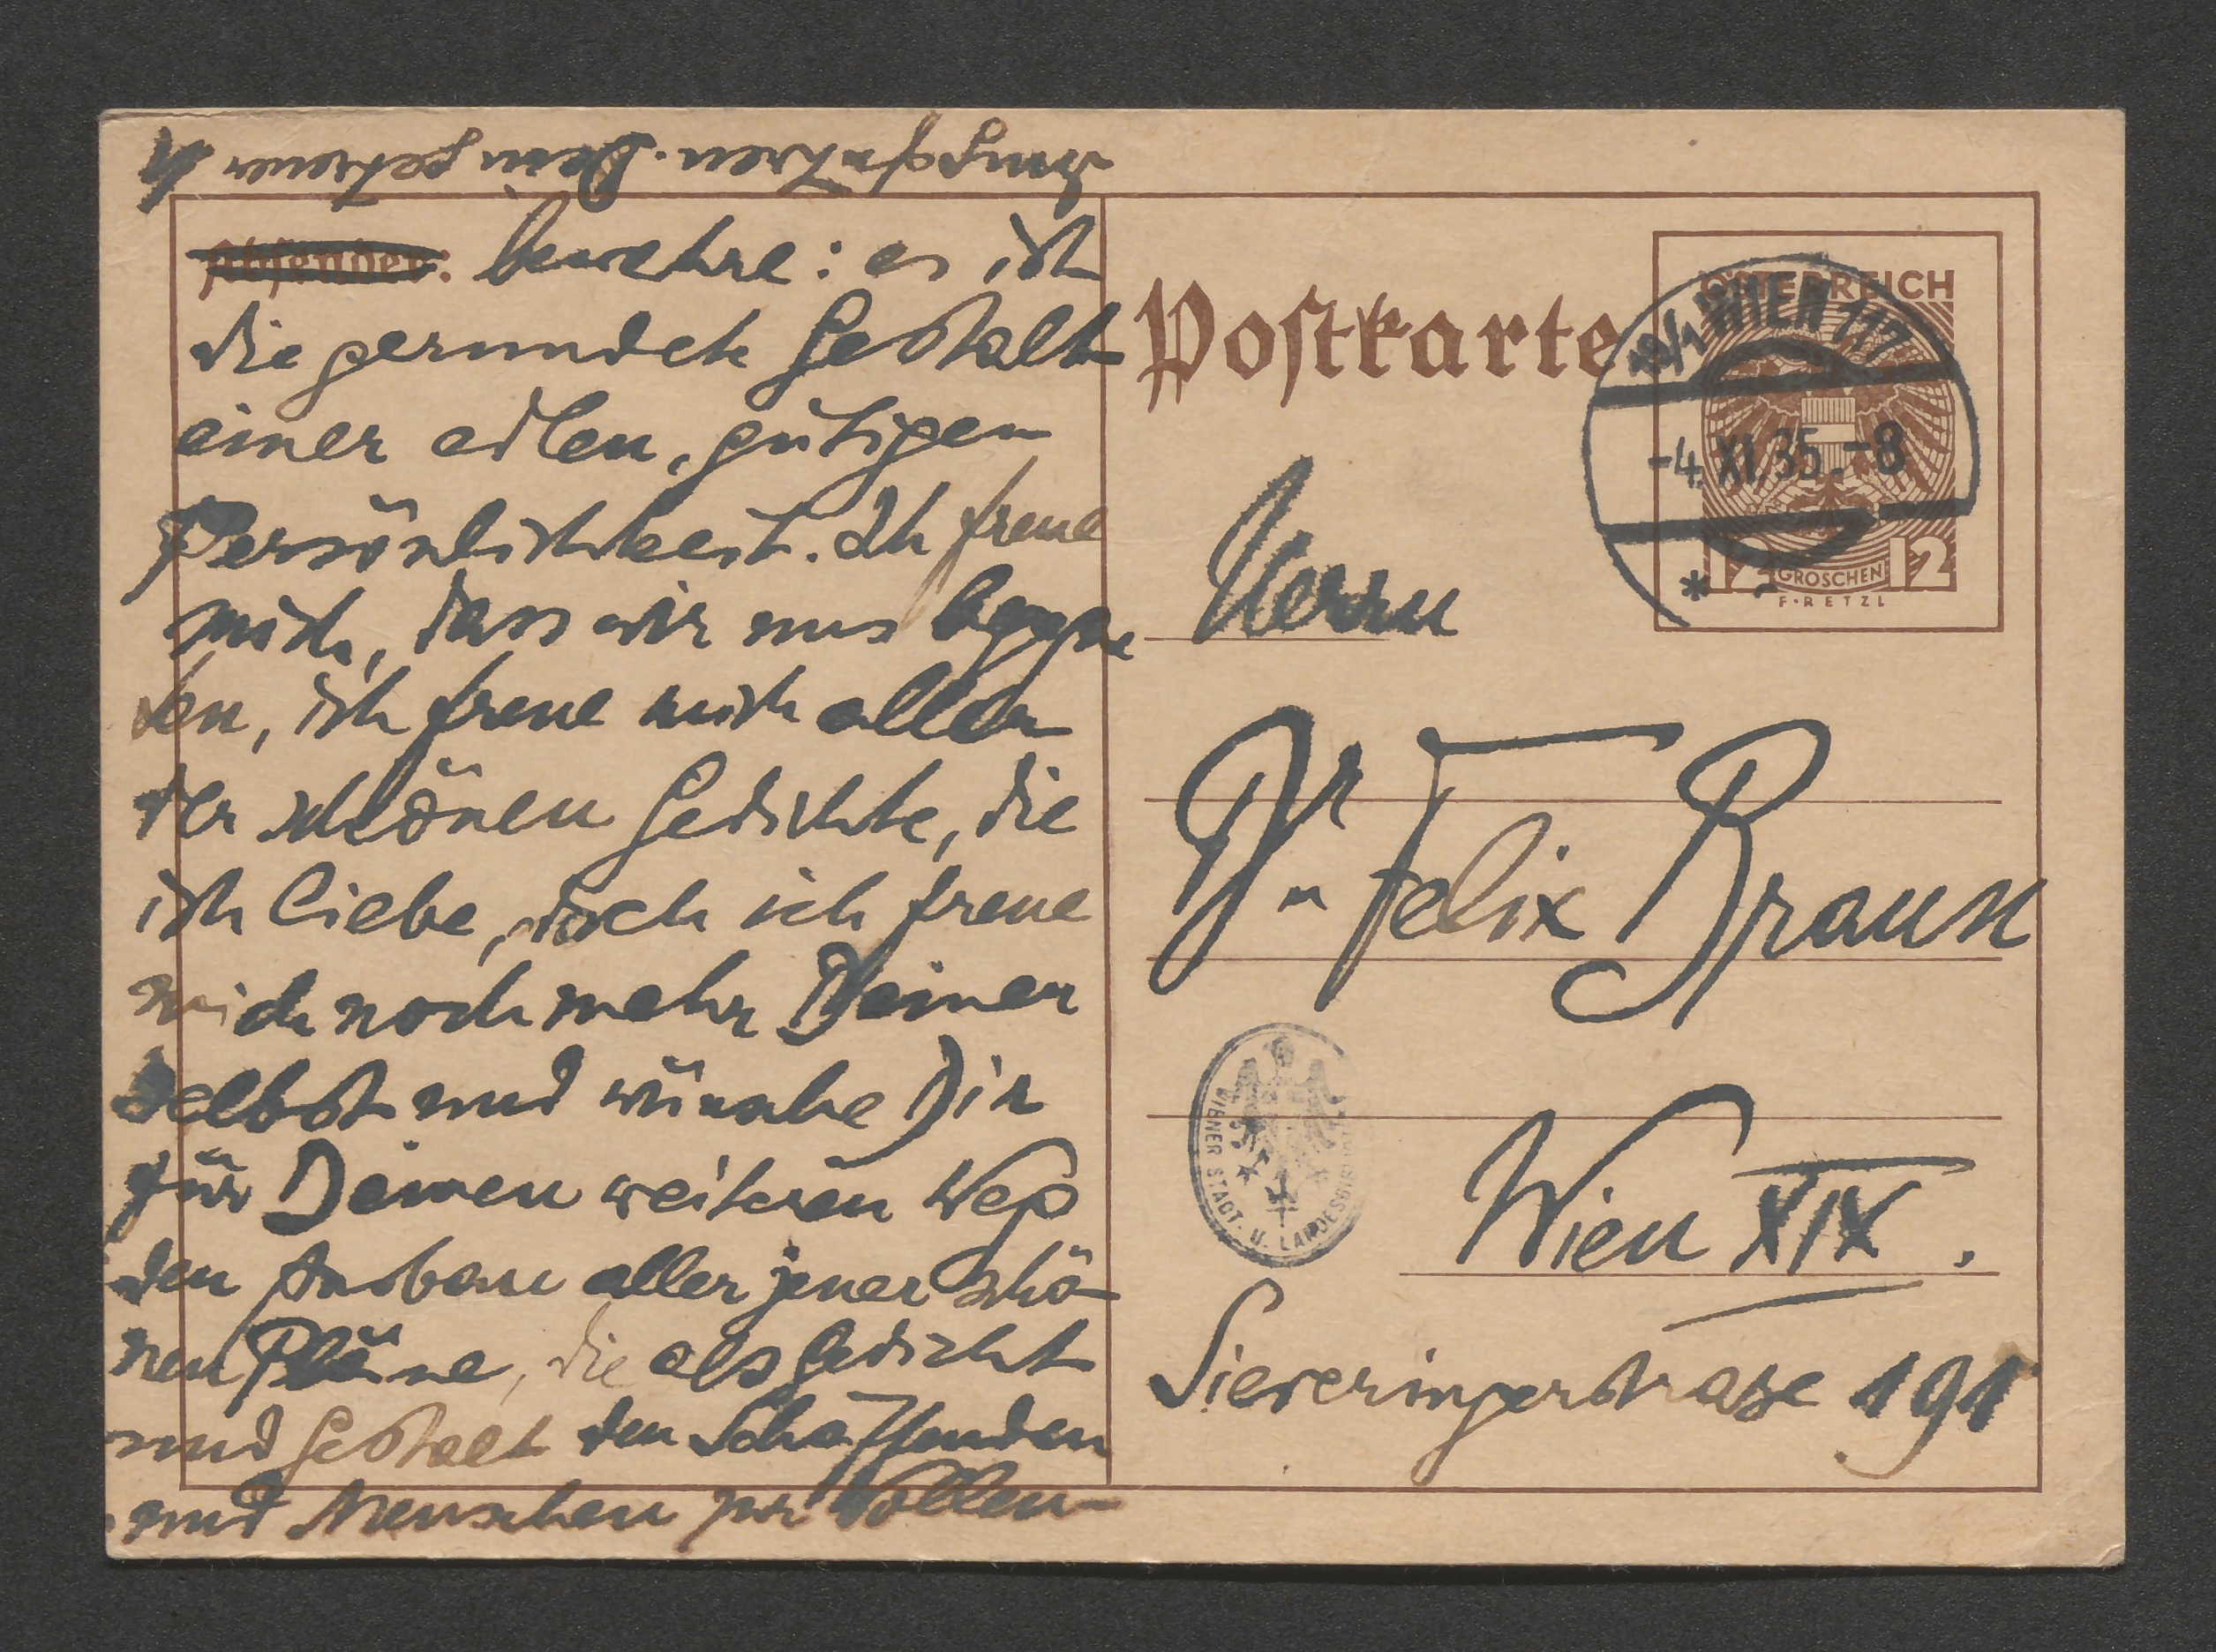 bewahre: es ist
die gerundete Gestalt
einer edlen, gütigen
Persönlichkeit. Ich freue
mich, dass wir uns begegne
ten, ich freue mich aller
der schönen Gedichte, die
ich liebe, doch ich freue
mich noch mehr Deiner
selbst und wünsche Dir
für Deinen weiteren Weg
den Ausbau aller jener schö-
nen Pläne, die als Gedicht
und Gestalt den Schaffenden
und Menschen zur Vollen-
dung führen. Dein getreuer
Postkarte
ÖSTERREICH
18/1 WIEN 117
-4.XI.35.-8
12 GROSCHEN 12
F·RETZL
Herrn
Dr Felix Braun
Wien XIX.
Sieveringerstrasse 191
WIENER STADT- U. LANDESBIBLIOTHEK